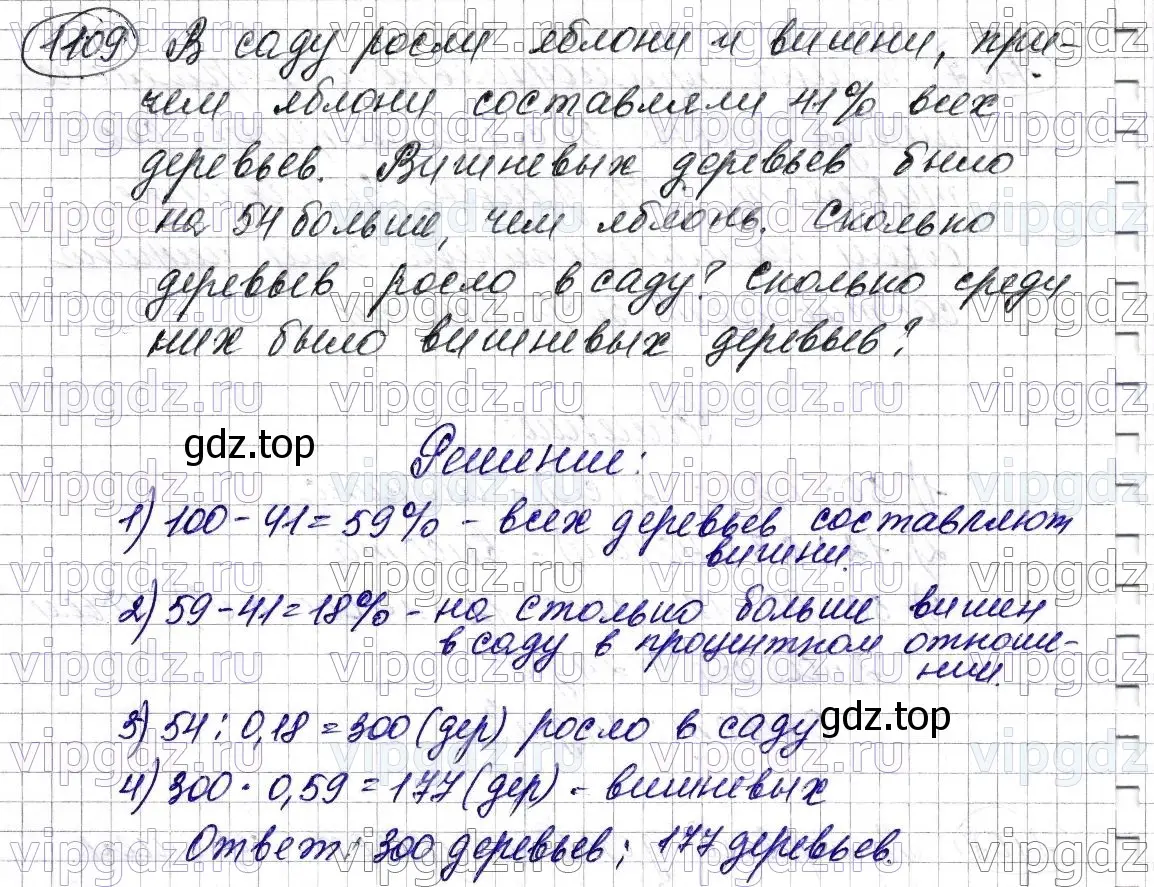 1109 В саду росли яблони и вишни, при-
чем яблони составляли 41% всех
деревьев. Вишневых деревьев было
на 54 больше, чем яблонь. Сколько
деревьев росло в саду? Сколько среди
них было вишневых деревьев?
gdz.top
Решение:
1) 100 - 41 = 59% - всех деревьев составляют
вишни.
2) 59 - 41 = 18% - на столько больше вишен
в саду в процентном отноше-
нии.
3) 54 : 0,18 = 300 (дер) росло в саду
gdz.top
4) 300 · 0,59 = 177 (дер) - вишневых
Ответ: 300 деревьев; 177 деревьев.
vipgdz.ru